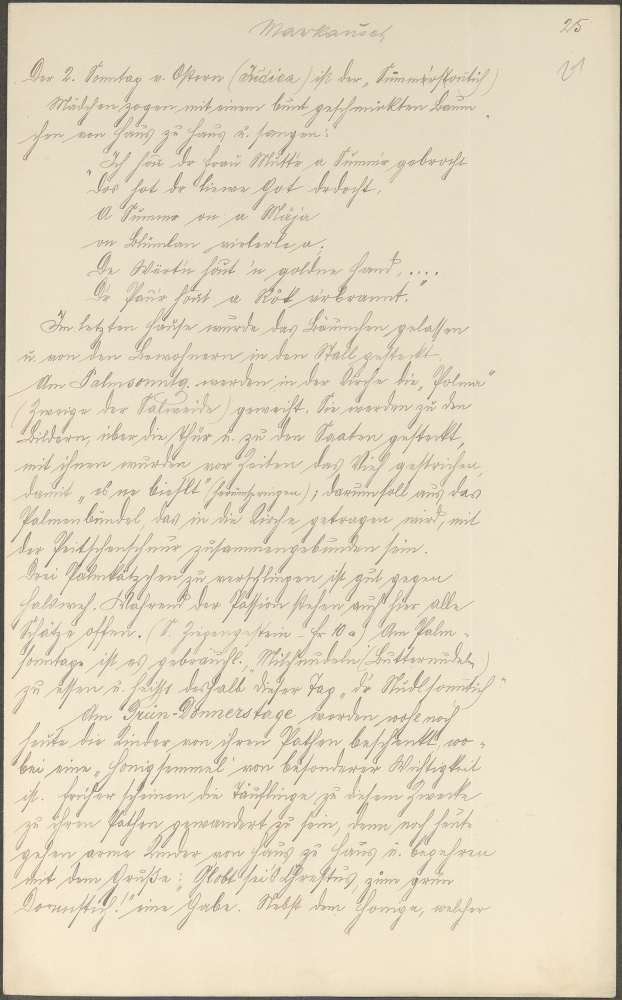 Markausch
25
Der 2. Sonntag v. Ostern (Judica) ist der „Summerskontich)
Mädchen zogen mit einem bunt geschmückten Bäum
chen von Haus zu Haus u. sangen:
"Ich hou dr Frau Mutt'r a Summ'r gebrocht
Dos hot dr liewe Got drdocht.
A Summr on a Maja
on Blümlan vielerlea.
De Wärt'n hout 'n goldne Hand, ....
Dr Paur hout a Rok vrbrannt."
Im letzten Hause wurde das Bäumchen gelassen
u. von den Bewohnern in den Stall gesteckt.
Am Palmsonntg. werden in der Kirche die „Polma"
(Zweige der Salweide) geweiht. Sie werden zu den
Bildern, über die Thür u. zu den Saaten gesteckt,
mit ihnen wurden vor Zeiten das Vieh gestrichen,
damit „es ne biehlt" ; darum soll auch das
Palmenbündel, das in die Kirche getragen wird, mit
der Peitschenschnur zusammengebunden sein.
Drei Palmkätzchen zu verschlingen ist gut gegen
Halsweh. Während der Passion stehen auch hier alle
Schätze offen. (S. Ziegengestein - Hr 10 a) Am Palm-
sonntage ist es gebräuchl. „Milchnudeln (Butternudeln)
zu essen u. heißt deshalb dieser Tag „dr Nudlsonntich"
Am Grün-Donnerstage werden wohl noch
heute die Kinder von ihren Pathen beschenkt, wo-
bei eine „Honigsemmel" von besonderer Wichtigkeit
ist. Früher scheinen die Täuflinge zu diesem Zwecke
zu ihren Pathen gewandert zu sein, denn noch heute
gehen arme Kinder von Haus zu Haus u. begehren
mit dem Gruße: „Globt seis Chrestus, zum grün
Dornrstich!" eine Gabe. Nebst dem Honige, welcher